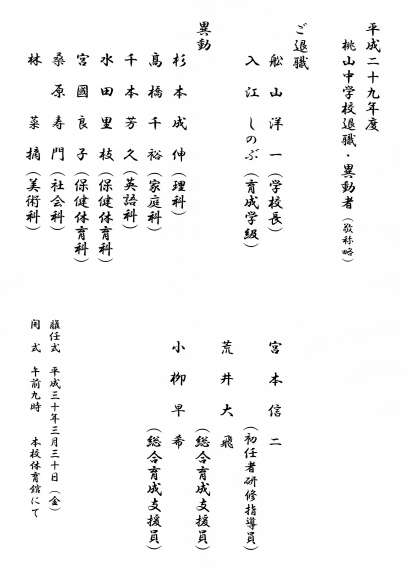 平成二十九年度
桃山中学校退職・異動者（敬称略）
ご退職
舩山洋一（学校長）
入江しのぶ（育成学級）
異動
杉本成伸（理科）
髙橋千裕（家庭科）
千本芳久（英語科）
水田里枝（保健体育科）
宮國良子（保健体育科）
桑原寿門（社会科）
林菜摘（美術科）
宮本信二
（初任者研修指導員）
荒井大飛
（総合育成支援員）
小柳早希
（総合育成支援員）
離任式 平成三十年三月三十日（金）
開式 午前九時 本校体育館にて